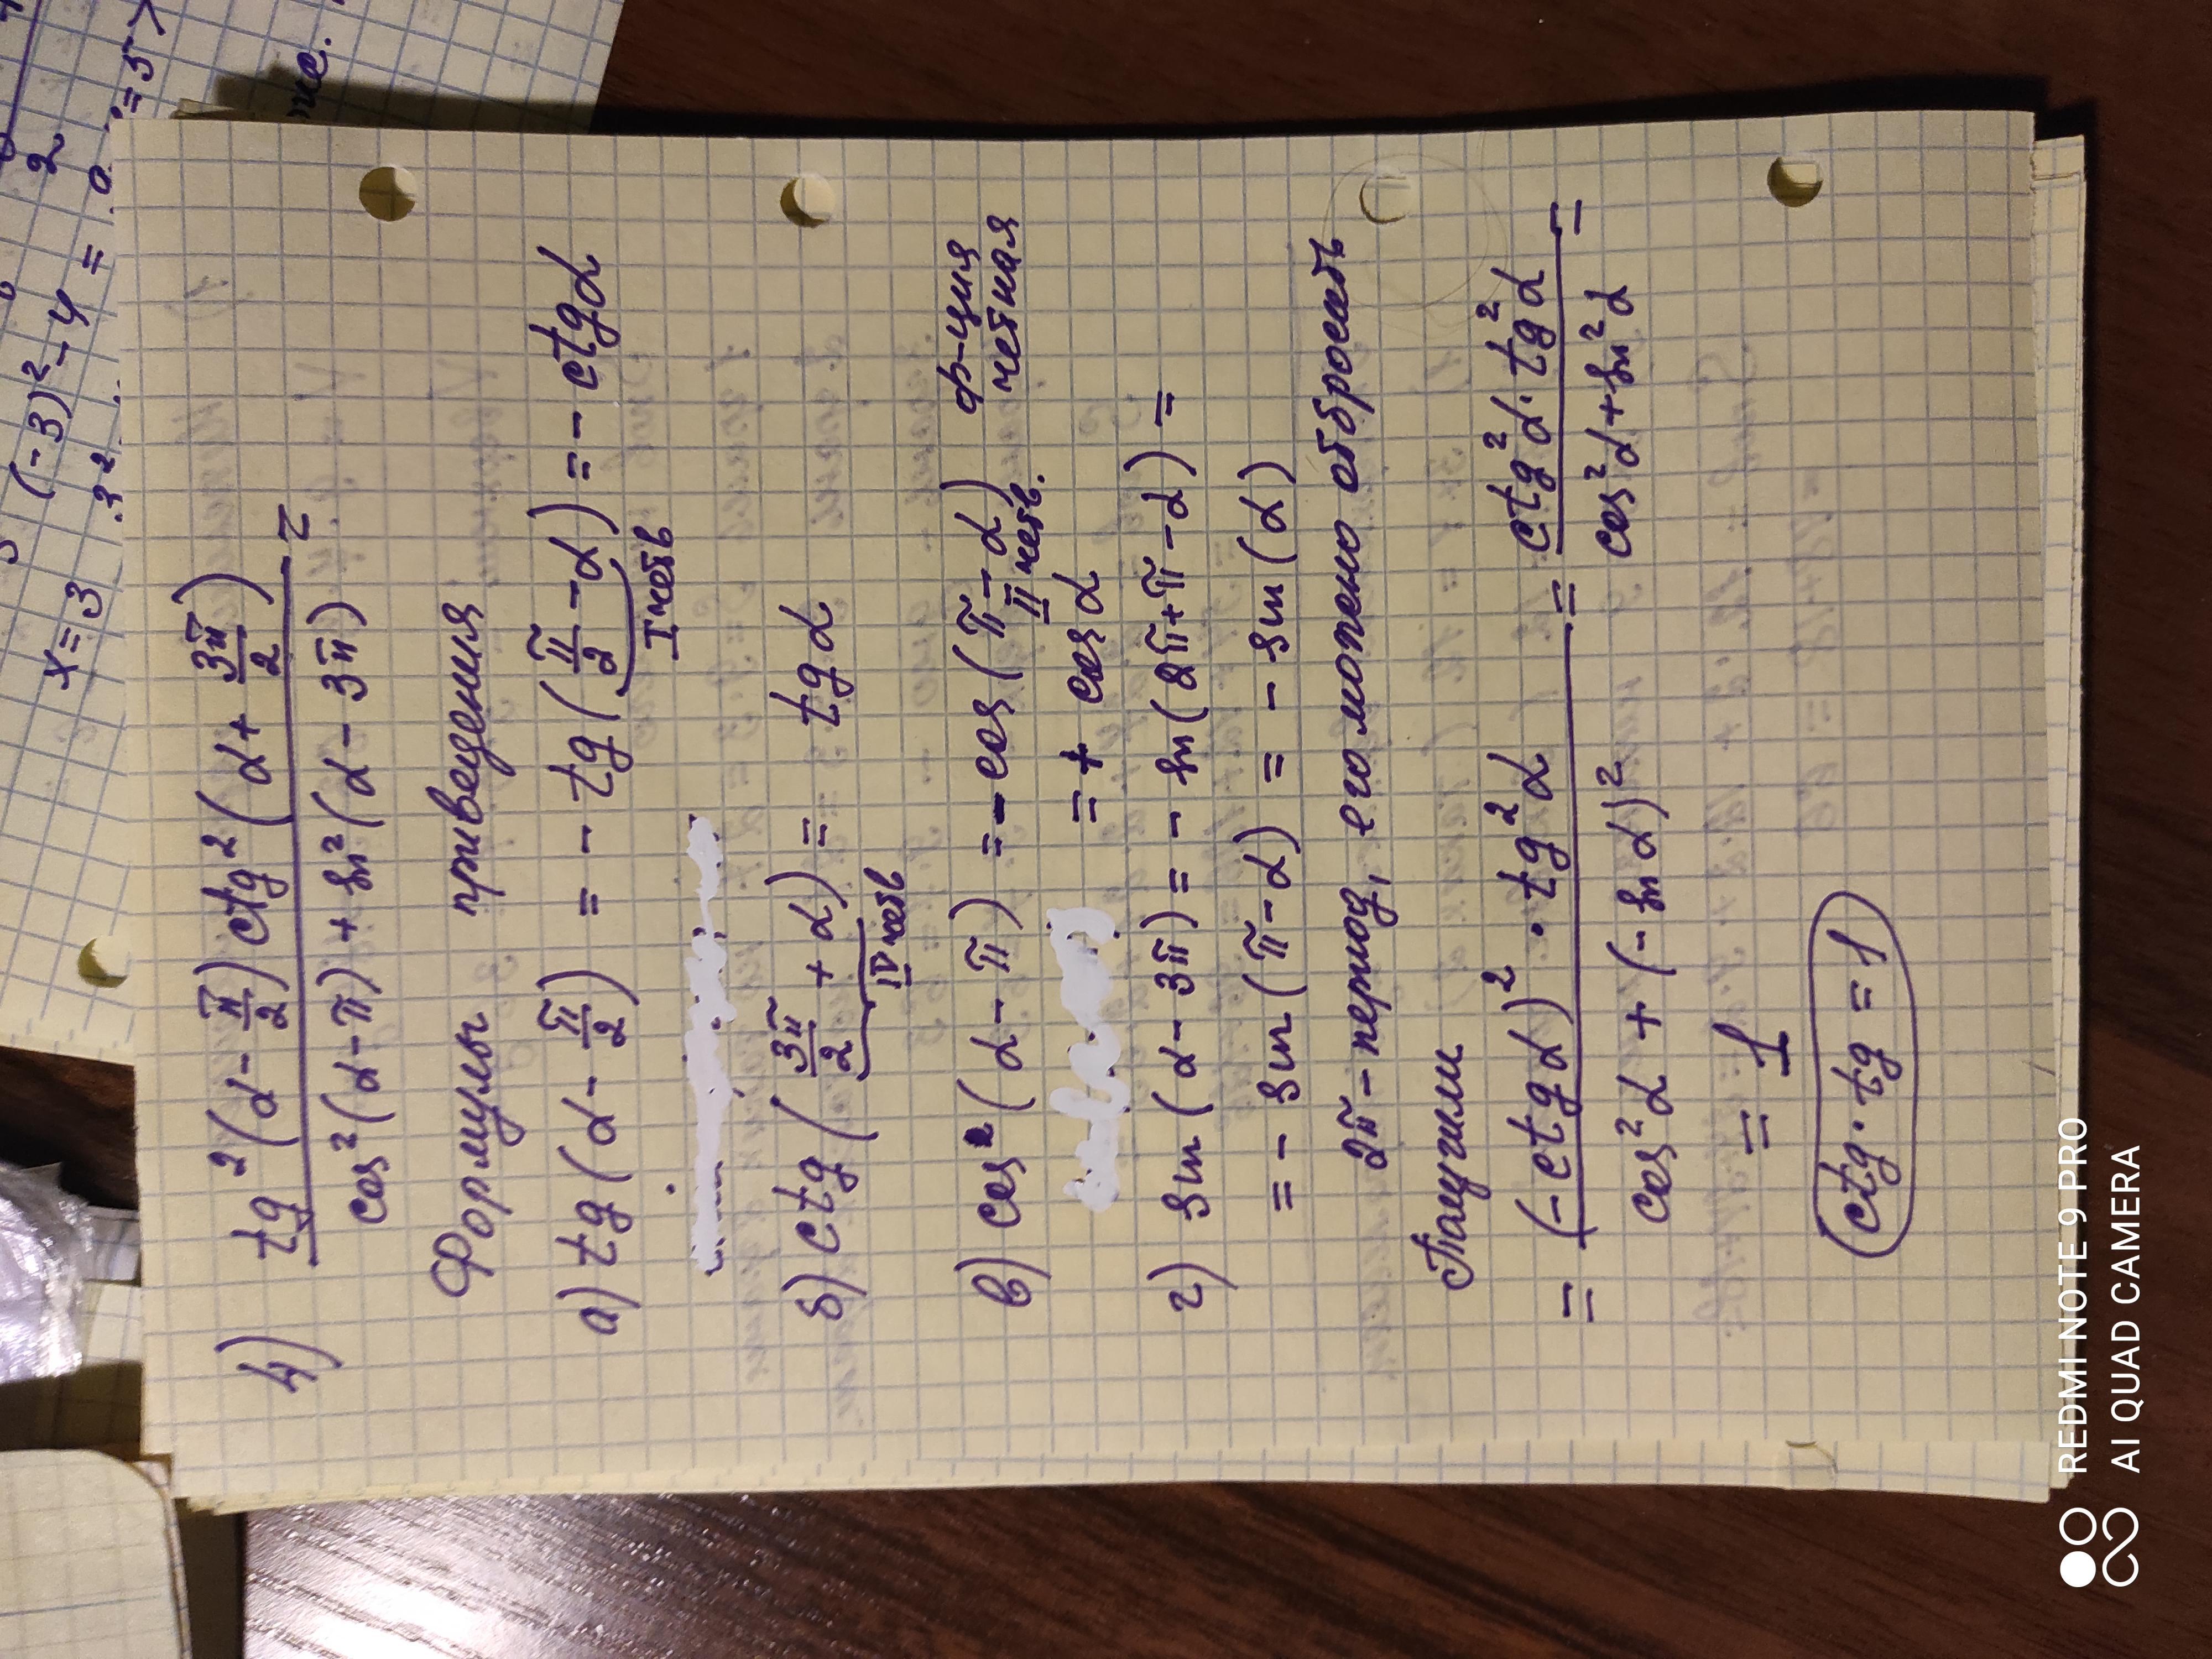 x=3
(-3)² - 4 =
4) tg²(α - π/2) ctg²(α + 3π/2) / cos²(α - π) + sin²(α - 3π) =
Формулы приведения
а) tg(α - π/2) = - tg(π/2 - α) = - ctg α
I четв
б) ctg(3π/2 + α) = tg α
IV четв
в) cos(α - π) = - cos(π - α) ф-ция
II четв. четная
= + cos α
г) sin(α - 3π) = - sin(2π + π - α) =
= - sin(π - α) = - sin(α)
2π - период, его можено отбросать
Получили
= (-ctg α)² · tg² α / cos² α + (- sin α)² = ctg² α · tg² α / cos² α + sin² α =
= 1
ctg · tg = 1
REDMI NOTE 9 PRO
AI QUAD CAMERA